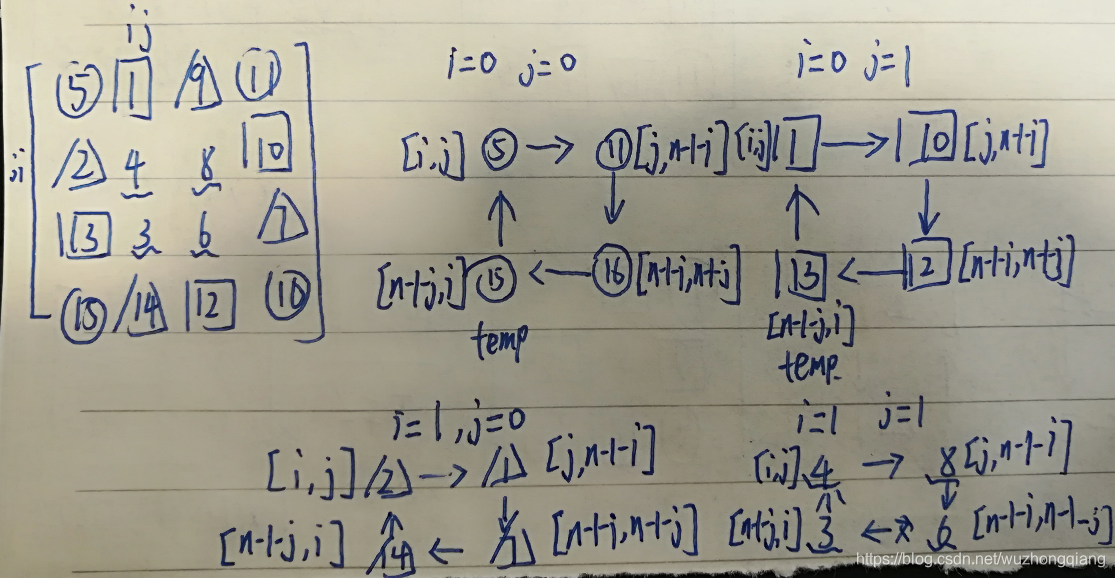 ij
i=0 j=0
i=0 j=1
5 1 9 11
[i,j] 5 → 11 [j,n-1-i] [i,j] 1 → 10 [j,n-1-i]
ji 2 4 8 10
13 3 6 7
[n-1-j,i] 15 ← 16 [n-1-i,n-1-j] 13 ← 12 [n-1-i,n-1-j]
15 14 12 16
temp
[n-1-j,i]
temp
i=1,j=0
i=1 j=1
[i,j] 2 → [j,n-1-i]
[i,j] 4 → 8 [j,n-1-i]
[n-1-j,i] 14 ← 7 [n-1-i,n-1-j]
[n-1-j,i] 3 ← 6 [n-1-i,n-1-j]
https://blog.csdn.net/wuzhongqiang